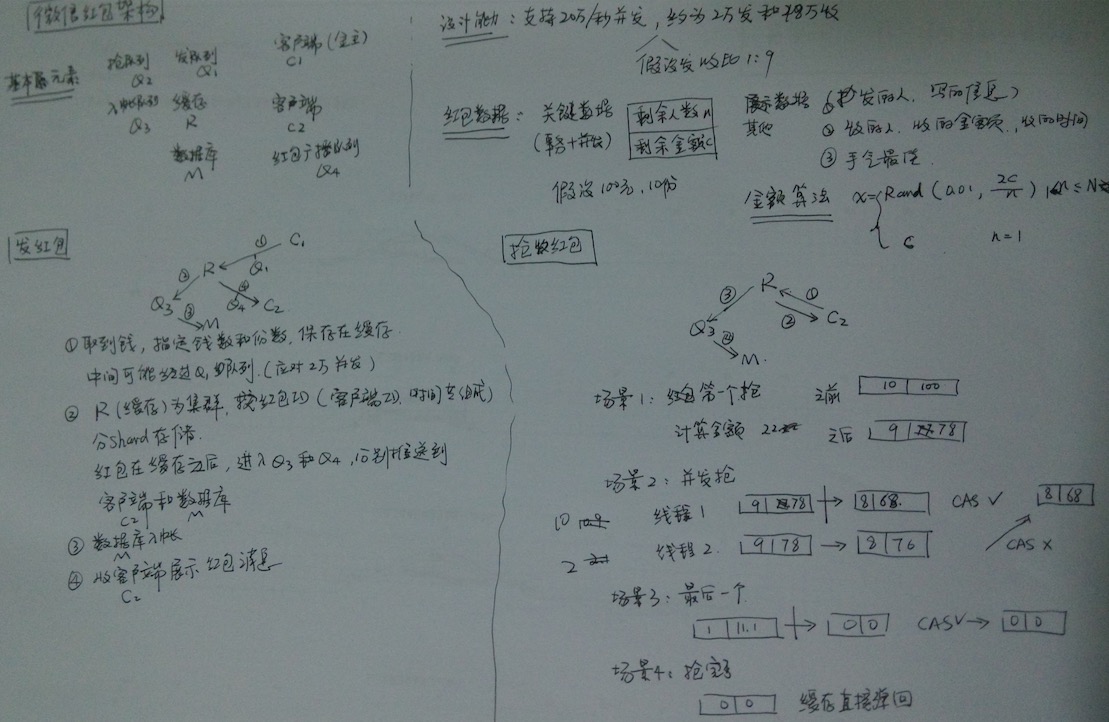 微信红包架构
基本元素
抢队列 发队列 客户端(金主)
Q2 Q1 C1
入账队列 缓存 客户端
Q3 R C2
数据库 红包广播队列
M Q4
设计能力：支持20万/秒并发，约为2万发和18万收
假设发收比1:9
红包数据：关键数据
(事务+并发)
剩余人数n
剩余金额c
假设100元，10份
展示数据
其他
发的人，写的信息
② 收的人，收的金额，收的时间
③ 手气最佳
金额算法 x= Rand(0.01, 2c/n) 1<n≤N
c n=1
发红包
① C1
R Q1
② ④
Q3 Q4 C2
③ M
① 取到钱，指定钱数和份数，保存在缓存
中间可能经过Q1队列.(应对2万并发)
② R(缓存)为集群，按红包ID(客户端ID,时间等组成)
分shard存储.
红包在缓存之后，进入Q3和Q4,分别推送到
客户端和数据库
C2 M
③ 数据库入账
M
④ 收客户端展示红包消息
C2
抢收红包
R
③ ①
Q3 ② C2
M.
场景1：红包第一个抢 之前 10 | 100
计算金额 22 之后 9 | 78
场景2：并发抢
10 线程1 9 | 78 → 8 | 68 CAS √ 8 | 68
2 线程2. 9 | 78 → 8 | 76 CAS ×
场景3：最后一个
1 | 11.1 → 0 | 0 CAS√ → 0 | 0
场景4：抢完了
0 | 0 缓存直接弹回